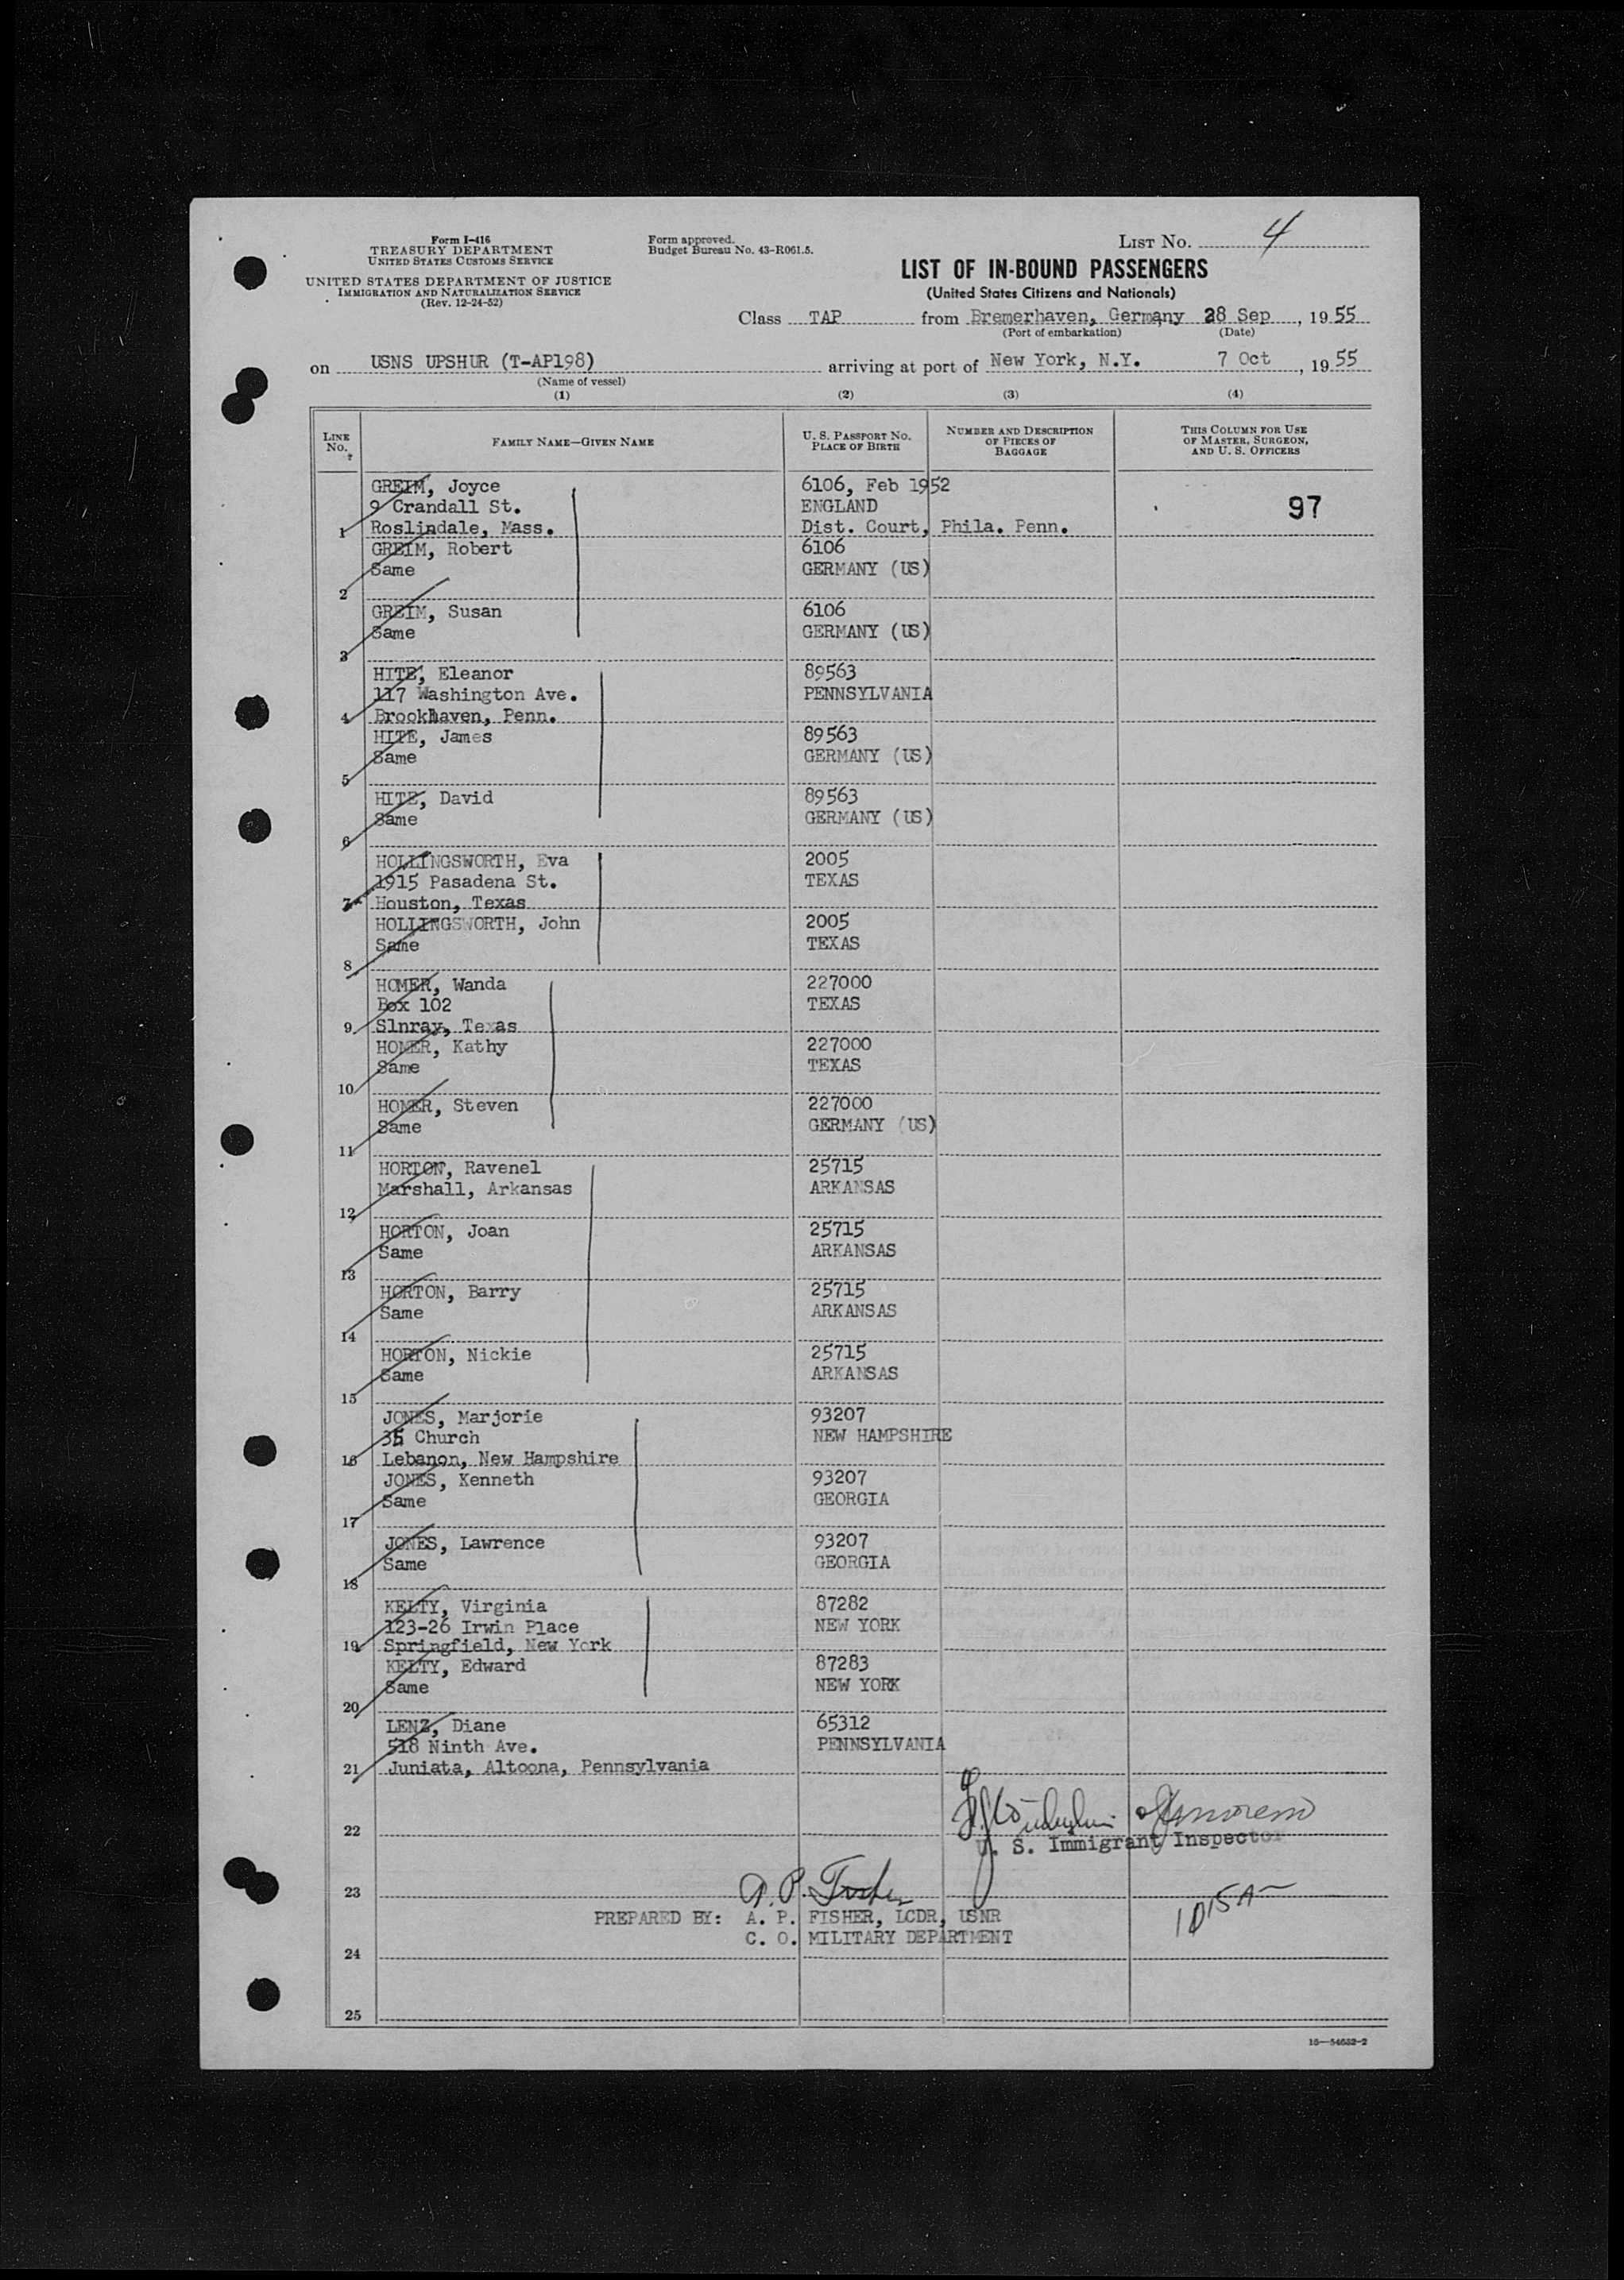 Form I-416
TREASURY DEPARTMENT
UNITED STATES CUSTOMS SERVICE
UNITED STATES DEPARTMENT OF JUSTICE
IMMIGRATION AND NATURALIZATION SERVICE
(Rev. 12-24-52)
Form approved.
Budget Bureau No. 43-R061.5.
LIST No. 4
LIST OF IN-BOUND PASSENGERS
(United States Citizens and Nationals)
Class TAP from Bremerhaven, Germany 28 Sep, 1955
(Port of embarkation) (Date)
on USNS UPSHUR (T-AP198) arriving at port of New York, N.Y. 7 Oct, 1955
(Name of vessel)
(1) (2) (3) (4)
LINE No. FAMILY NAME—GIVEN NAME U. S. PASSPORT No. PLACE OF BIRTH NUMBER AND DESCRIPTION OF PIECES OF BAGGAGE THIS COLUMN FOR USE OF MASTER, SURGEON, AND U. S. OFFICERS
GREIM, Joyce 6106, Feb 1952
9 Crandall St. ENGLAND 97
1 Roslindale, Mass. Dist. Court, Phila. Penn.
GREIM, Robert 6106
Same GERMANY (US)
2
GREIM, Susan 6106
Same GERMANY (US)
3
HITE, Eleanor 89563
117 Washington Ave. PENNSYLVANIA
4 Brookhaven, Penn.
HITE, James 89563
Same GERMANY (US)
5
HITE, David 89563
Same GERMANY (US)
6
HOLLINGSWORTH, Eva 2005
1915 Pasadena St. TEXAS
7 Houston, Texas
HOLLINGSWORTH, John 2005
Same TEXAS
8
HOMER, Wanda 227000
Box 102 TEXAS
9 Slnray, Texas
HOMER, Kathy 227000
Same TEXAS
10
HOMER, Steven 227000
Same GERMANY (US)
11
HORTON, Ravenel 25715
Marshall, Arkansas ARKANSAS
12
HORTON, Joan 25715
Same ARKANSAS
13
HORTON, Barry 25715
Same ARKANSAS
14
HORTON, Nickie 25715
Same ARKANSAS
15
JONES, Marjorie 93207
35 Church NEW HAMPSHIRE
16 Lebanon, New Hampshire
JONES, Kenneth 93207
Same GEORGIA
17
JONES, Lawrence 93207
Same GEORGIA
18
KELTY, Virginia 87282
123-26 Irwin Place NEW YORK
19 Springfield, New York
KELTY, Edward 87283
Same NEW YORK
20
LENZ, Diane 65312
518 Ninth Ave. PENNSYLVANIA
21 Juniata, Altoona, Pennsylvania
22
U. S. Immigrant Inspector
A. P. Fisher
23
PREPARED BY: A. P. FISHER, LCDR, USNR
1015A
C. O. MILITARY DEPARTMENT
24
25
16—54632-2